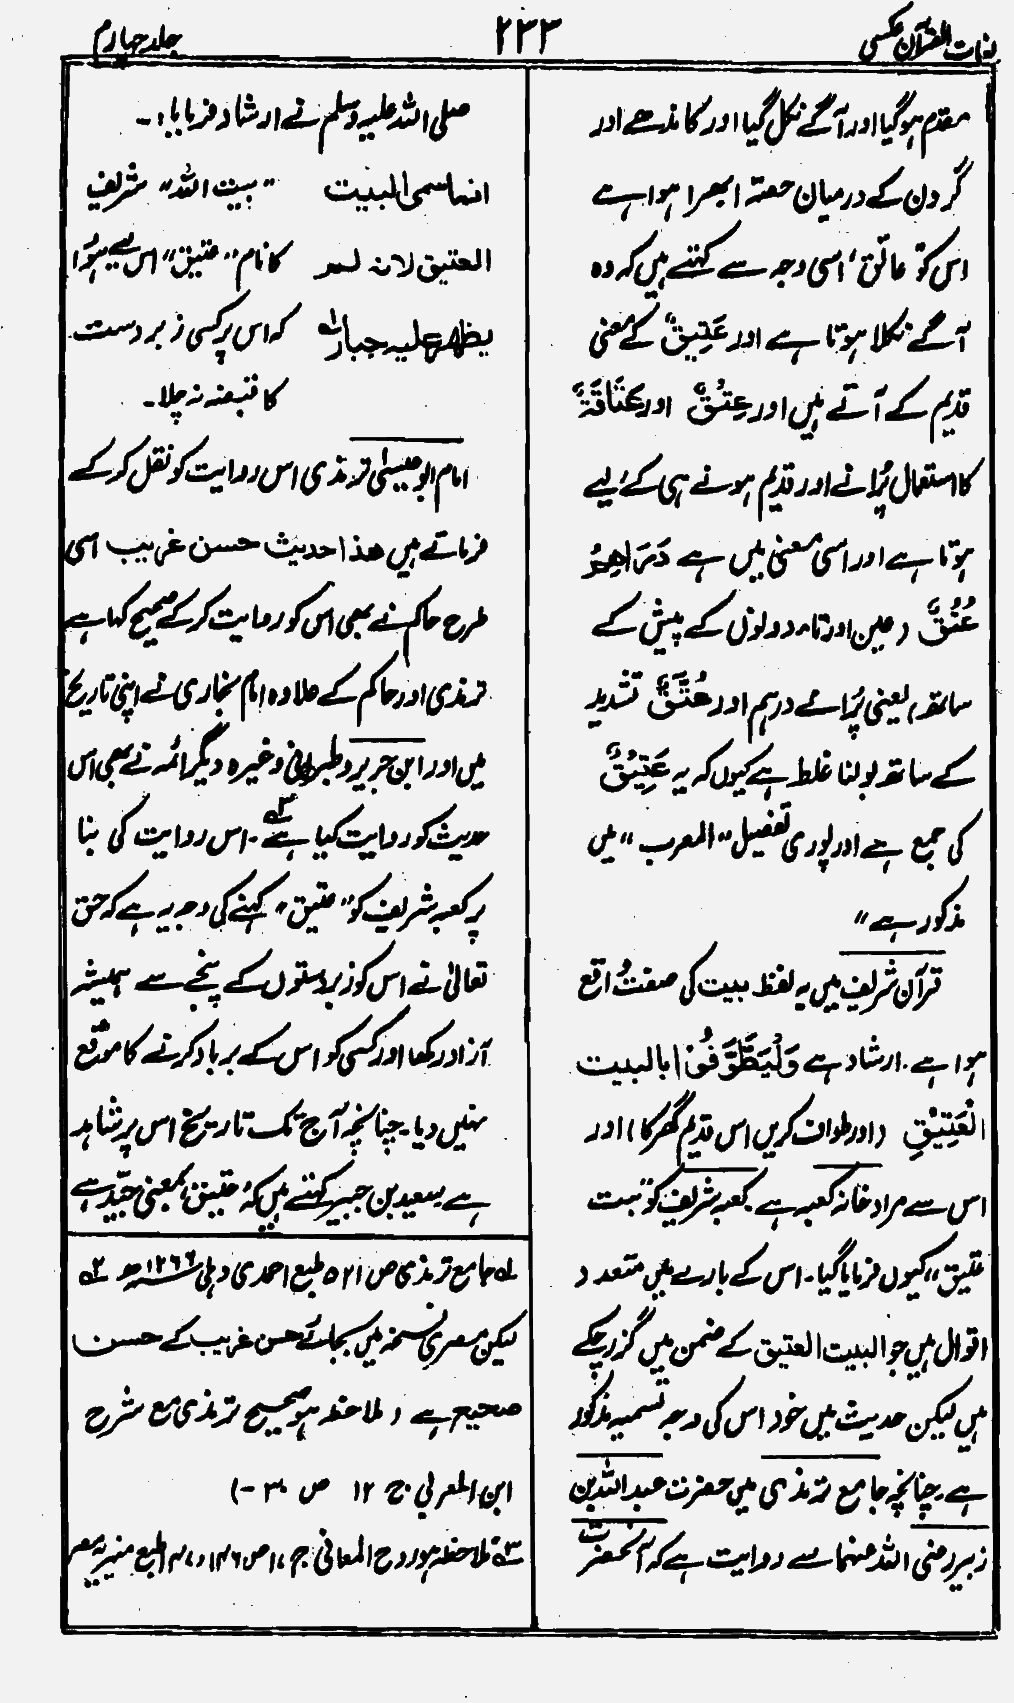 لغات القرآن عکسی
۲۳۳
جلد چہارم
مقدم ہو گیا اور آگے نکل گیا اور کاندھے اور
گردن کے درمیان حصّہ ابھرا ہوا ہے
اس کو عاتق، اسی وجہ سے کہتے ہیں کہ وہ
آگے نکلا ہوتا ہے اور عَتِیْقٌ کے معنی
قدیم کے آتے ہیں اور عِتْقٌ اور عِتَاقَۃٌ
کا استعمال پُرانے اور قدیم ہونے ہی کے لیے
ہوتا ہے اور اسی معنیٰ میں ہے دَرَاھِمُ
عُتُقٌ (عین اور تاء دونوں کے پیش کے
ساتھ) یعنی پُرانے درہم اور عُتَّقٌ تشدید
کے ساتھ بولنا غلط ہے کیوں کہ یہ عَتِیْقٌ
کی جمع ہے اور پوری تفصیل "المعرب" میں
مذکور ہے"
قرآن شریف میں یہ لفظ بیت کی صفت واقع
ہوا ہے۔ ارشاد ہے وَلْیَطَّوَّفُوْا بالبیت
الْعَتِیْقِ (اور طواف کریں اس قدیم گھر کا) اور
اس سے مراد خانہ کعبہ ہے۔ کعبہ شریف کو "بیت
عتیق" کیوں فرمایا گیا۔ اس کے بارے میں متعدد
اقوال ہیں جو البیت العتیق کے ضمن میں گزر چکے
ہیں لیکن حدیث میں خود اس کی وجہ تسمیہ مذکور
ہے۔ چنانچہ جامع ترمذی میں حضرت عبداللہ بن
زبیر رضی اللہ عنہما سے روایت ہے کہ آنحضرت
صلی اللہ علیہ وسلم نے ارشاد فرمایا:۔
انما سمی البیت "بیت اللہ" شریف
العتیق لانہ لم کا نام "عتیق" اس لیے ہوا
یظھر علیہ جبار ؎۱ کہ اس پر کسی زبردست
کا قبضہ نہ چلا۔
امام ابو عیسیٰ ترمذی اس روایت کو نقل کر کے
فرماتے ہیں ھذا حدیث حسن غریب اسی
طرح حاکم نے بھی اس کو روایت کر کے صحیح کہا ہے
ترمذی اور حاکم کے علاوہ امام بخاری نے اپنی تاریخ
میں اور ابن جریر و طبرانی وغیرہ دیگر ائمہ نے بھی اس
حدیث کو روایت کیا ہے ؎۳۔ اس روایت کی بنا
پر کعبہ شریف کو "عتیق" کہنے کی وجہ یہ ہے کہ حق
تعالیٰ نے اس کو زبردستوں کے پنجے سے ہمیشہ
آزاد رکھا اور کسی کو اس کے برباد کرنے کا موقع
نہیں دیا۔ چنانچہ آج تک تاریخ اس پر شاہد
ہے سعید بن جبیر کہتے ہیں کہ عتیق بمعنی جیّد ہے
؎۱ جامع ترمذی ص ۵۲۱ طبع احمدی دہلی سنہ ۱۲۶۶ھ ؎۲
لیکن مصری نسخہ میں بجائے حسن غریب کے حسن
صحیح ہے (ملاحظہ ہو صحیح ترمذی مع شرح
ابن العربی ج ۱۲ ص ۳۰۔)
؎۳ ملاحظہ ہو روح المعانی ج ۱۷ ص ۱۴۶ و ۱۴۷ طبع منیریہ مصر